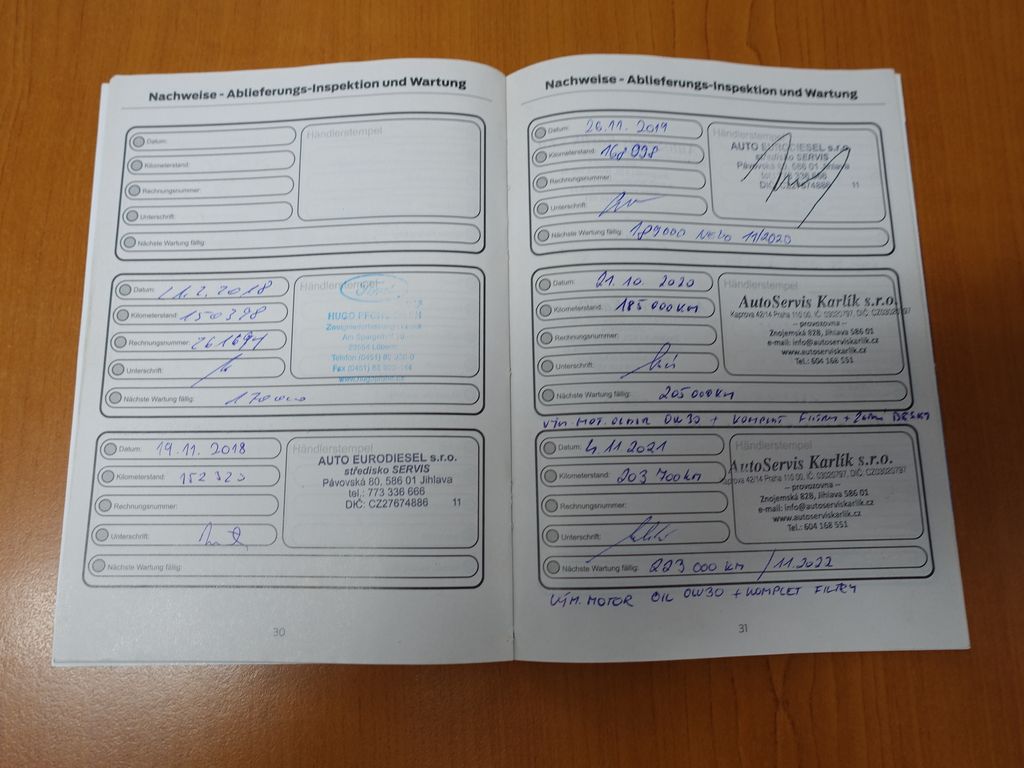 Nachweise - Ablieferungs-Inspektion und Wartung
Datum:
Kilometerstand:
Rechnungsnummer:
Unterschrift:
Nächste Wartung fällig:
Händlerstempel
Datum: 2.2018
Kilometerstand: 150398
Rechnungsnummer: 261694
Unterschrift:
Nächste Wartung fällig: 170000
Händlerstempel
Ford
HUGO
Am
Lübeck
Telefon (0451)
Fax (0451)
Datum: 19.11. 2018
Kilometerstand: 152 323
Rechnungsnummer:
Unterschrift:
Nächste Wartung fällig:
Händlerstempel
AUTO EURODIESEL s.r.o.
středisko SERVIS
Pávovská 80, 586 01 Jihlava
tel.: 773 336 666
DIČ: CZ27674886 11
30
Nachweise - Ablieferungs-Inspektion und Wartung
Datum: 26.11. 2019
Kilometerstand: 168 998
Rechnungsnummer:
Unterschrift:
Nächste Wartung fällig: 189000 NEBO 11/2020
Händlerstempel
AUTO EURODIESEL s.r.o.
středisko SERVIS
Pávovská 80, 586 01 Jihlava
tel.: 773 336 666
DIČ: CZ27674886 11
Datum: 21.10. 2020
Kilometerstand: 185 000 KM
Rechnungsnummer:
Unterschrift:
Nächste Wartung fällig: 205 000 KM
Händlerstempel
AutoServis Karlík s.r.o.
Kaprova 42/14 Praha 110 00, IČ: 03020797, DIČ: CZ03020797
-- provozovna --
Znojemská 828, Jihlava 586 01
e-mail: info@autoserviskarlik.cz
www.autoserviskarlik.cz
Tel.: 604 168 551
VÝM. MOT. OLEJE 0W30 + KOMPLET FILTRY +
Datum: 4.11.2021
Kilometerstand: 203 700 km
Rechnungsnummer:
Unterschrift:
Nächste Wartung fällig: 223 000 KM / 11.2022
Händlerstempel
AutoServis Karlík s.r.o.
Kaprova 42/14 Praha 110 00, IČ: 03020797, DIČ: CZ03020797
-- provozovna --
Znojemská 828, Jihlava 586 01
e-mail: info@autoserviskarlik.cz
www.autoserviskarlik.cz
Tel.: 604 168 551
VÝM. MOTOR OIL 0W30 + KOMPLET FILTRY
31